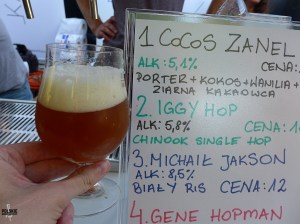 1 COCOS ZANEL
ALK: 5,1% CENA:
PORTER + KOKOS + WANILIA +
ZIARNA KAKAOWCA
2. IGGY HOP
ALK: 5,8% CENA: 1
CHINOOK SINGLE HOP
3. MICHAIŁ JAKSON
ALK: 8,5%
BIAŁY RIS CENA: 12
4. GENE HOPMAN